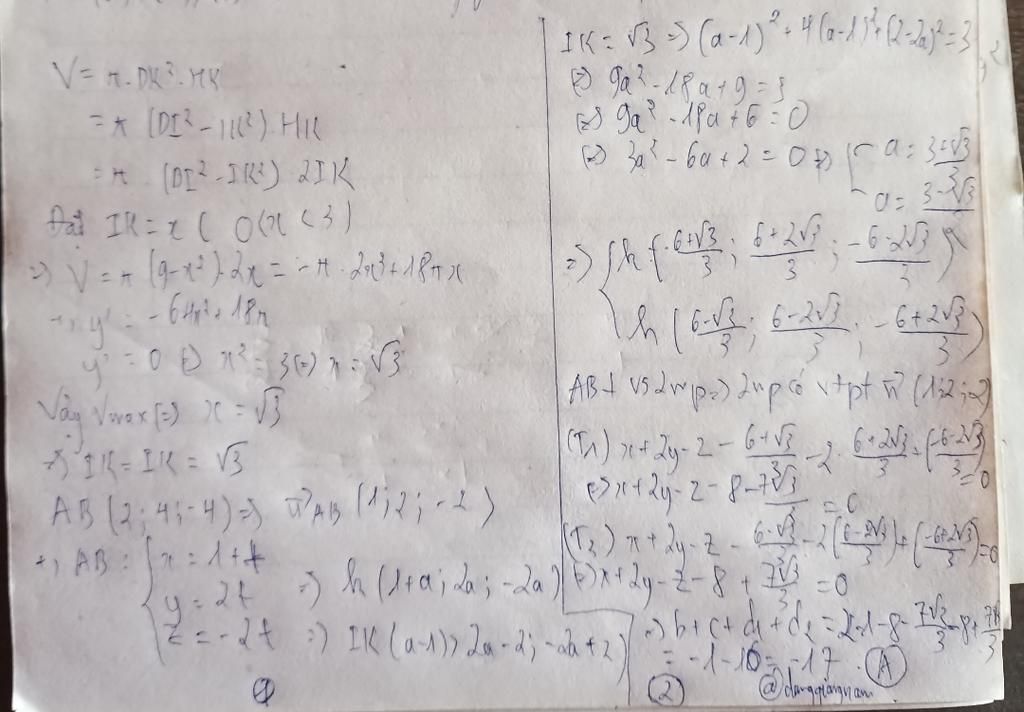 V = π.DK².HK
= π (DI² - IK²).HK
= π.(DI² - IK²).2IK
Đặt IK = x ( 0 < x < 3 )
=> V = π (9-x²).2x = -π.2x³ + 18πx
=> y' = -6πx² + 18π
y' = 0 <=> x² = 3 <=> x = √3
Vậy Vmax <=> x = √3
=> IK = IK = √3
AB (2; 4; -4) => u⃗AB (1; 2; -2)
+, AB: { x = 1+t
y = 2t => k (1+a; 2a; -2a)
z = -2t => IK (a-1; 2a-2; -2a+2)
1
IK = √3 => (a-1)² + 4(a-1)² + (2-2a)² = 3
<=> 9a² - 18a + 9 = 3
<=> 9a² - 18a + 6 = 0
<=> 3a² - 6a + 2 = 0 <=> [ a = (3+√3)/3
a = (3-√3)/3
=> { k ( (6+√3)/3 ; (6+2√3)/3 ; (-6-2√3)/3 )
h ( (6-√3)/3 ; (6-2√3)/3 ; (-6+2√3)/3 )
AB ⊥ vs 2mp => 2mp có vtpt n⃗ (1; 2; -2)
(T1) x + 2y - z - (6+√3)/3 - 2.(6+2√3)/3 + (-6-2√3)/3 = 0
<=> x + 2y - z - 8 - 7√3/3 = 0
(T2) x + 2y - z - (6-√3)/3 - 2((6-2√3)/3) + ((-6+2√3)/3) = 0
<=> x + 2y - z - 8 + 7√3/3 = 0
=> b + c + d1 + d2 = 2-1-8 - 7√3/3 - 8 + 7√3/3
= -1 - 16 = -17. A
2 @danggiangnam